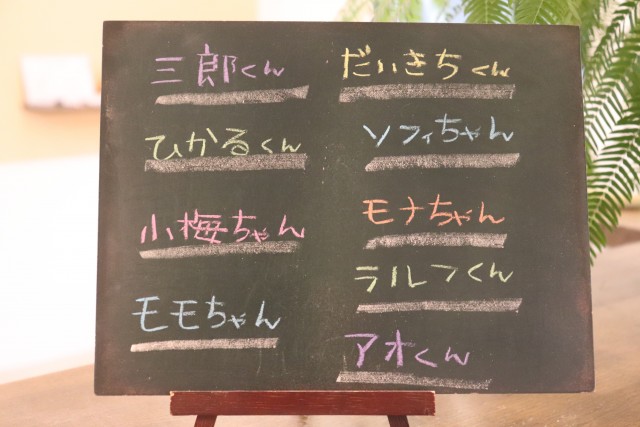 三郎くん
ひかるくん
小梅ちゃん
モモちゃん
だいきちくん
ソフィちゃん
モナちゃん
ラルフくん
アオくん